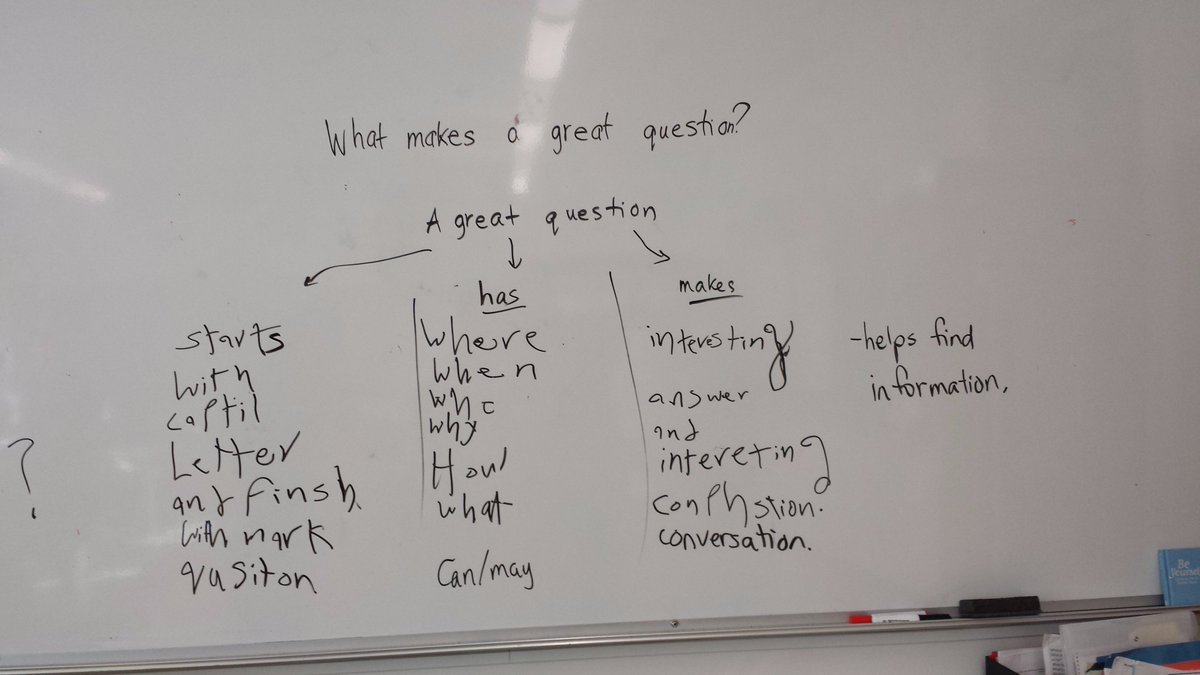 What makes a great question?
A great question
starts
with
captil
Letter
and finsh
with mark
qusiton
?
has
where
when
who
why
How
what
Can/may
makes
interesting
answer
and
intereting
conphstion.
conversation.
-helps find
information.
Be
Yourself